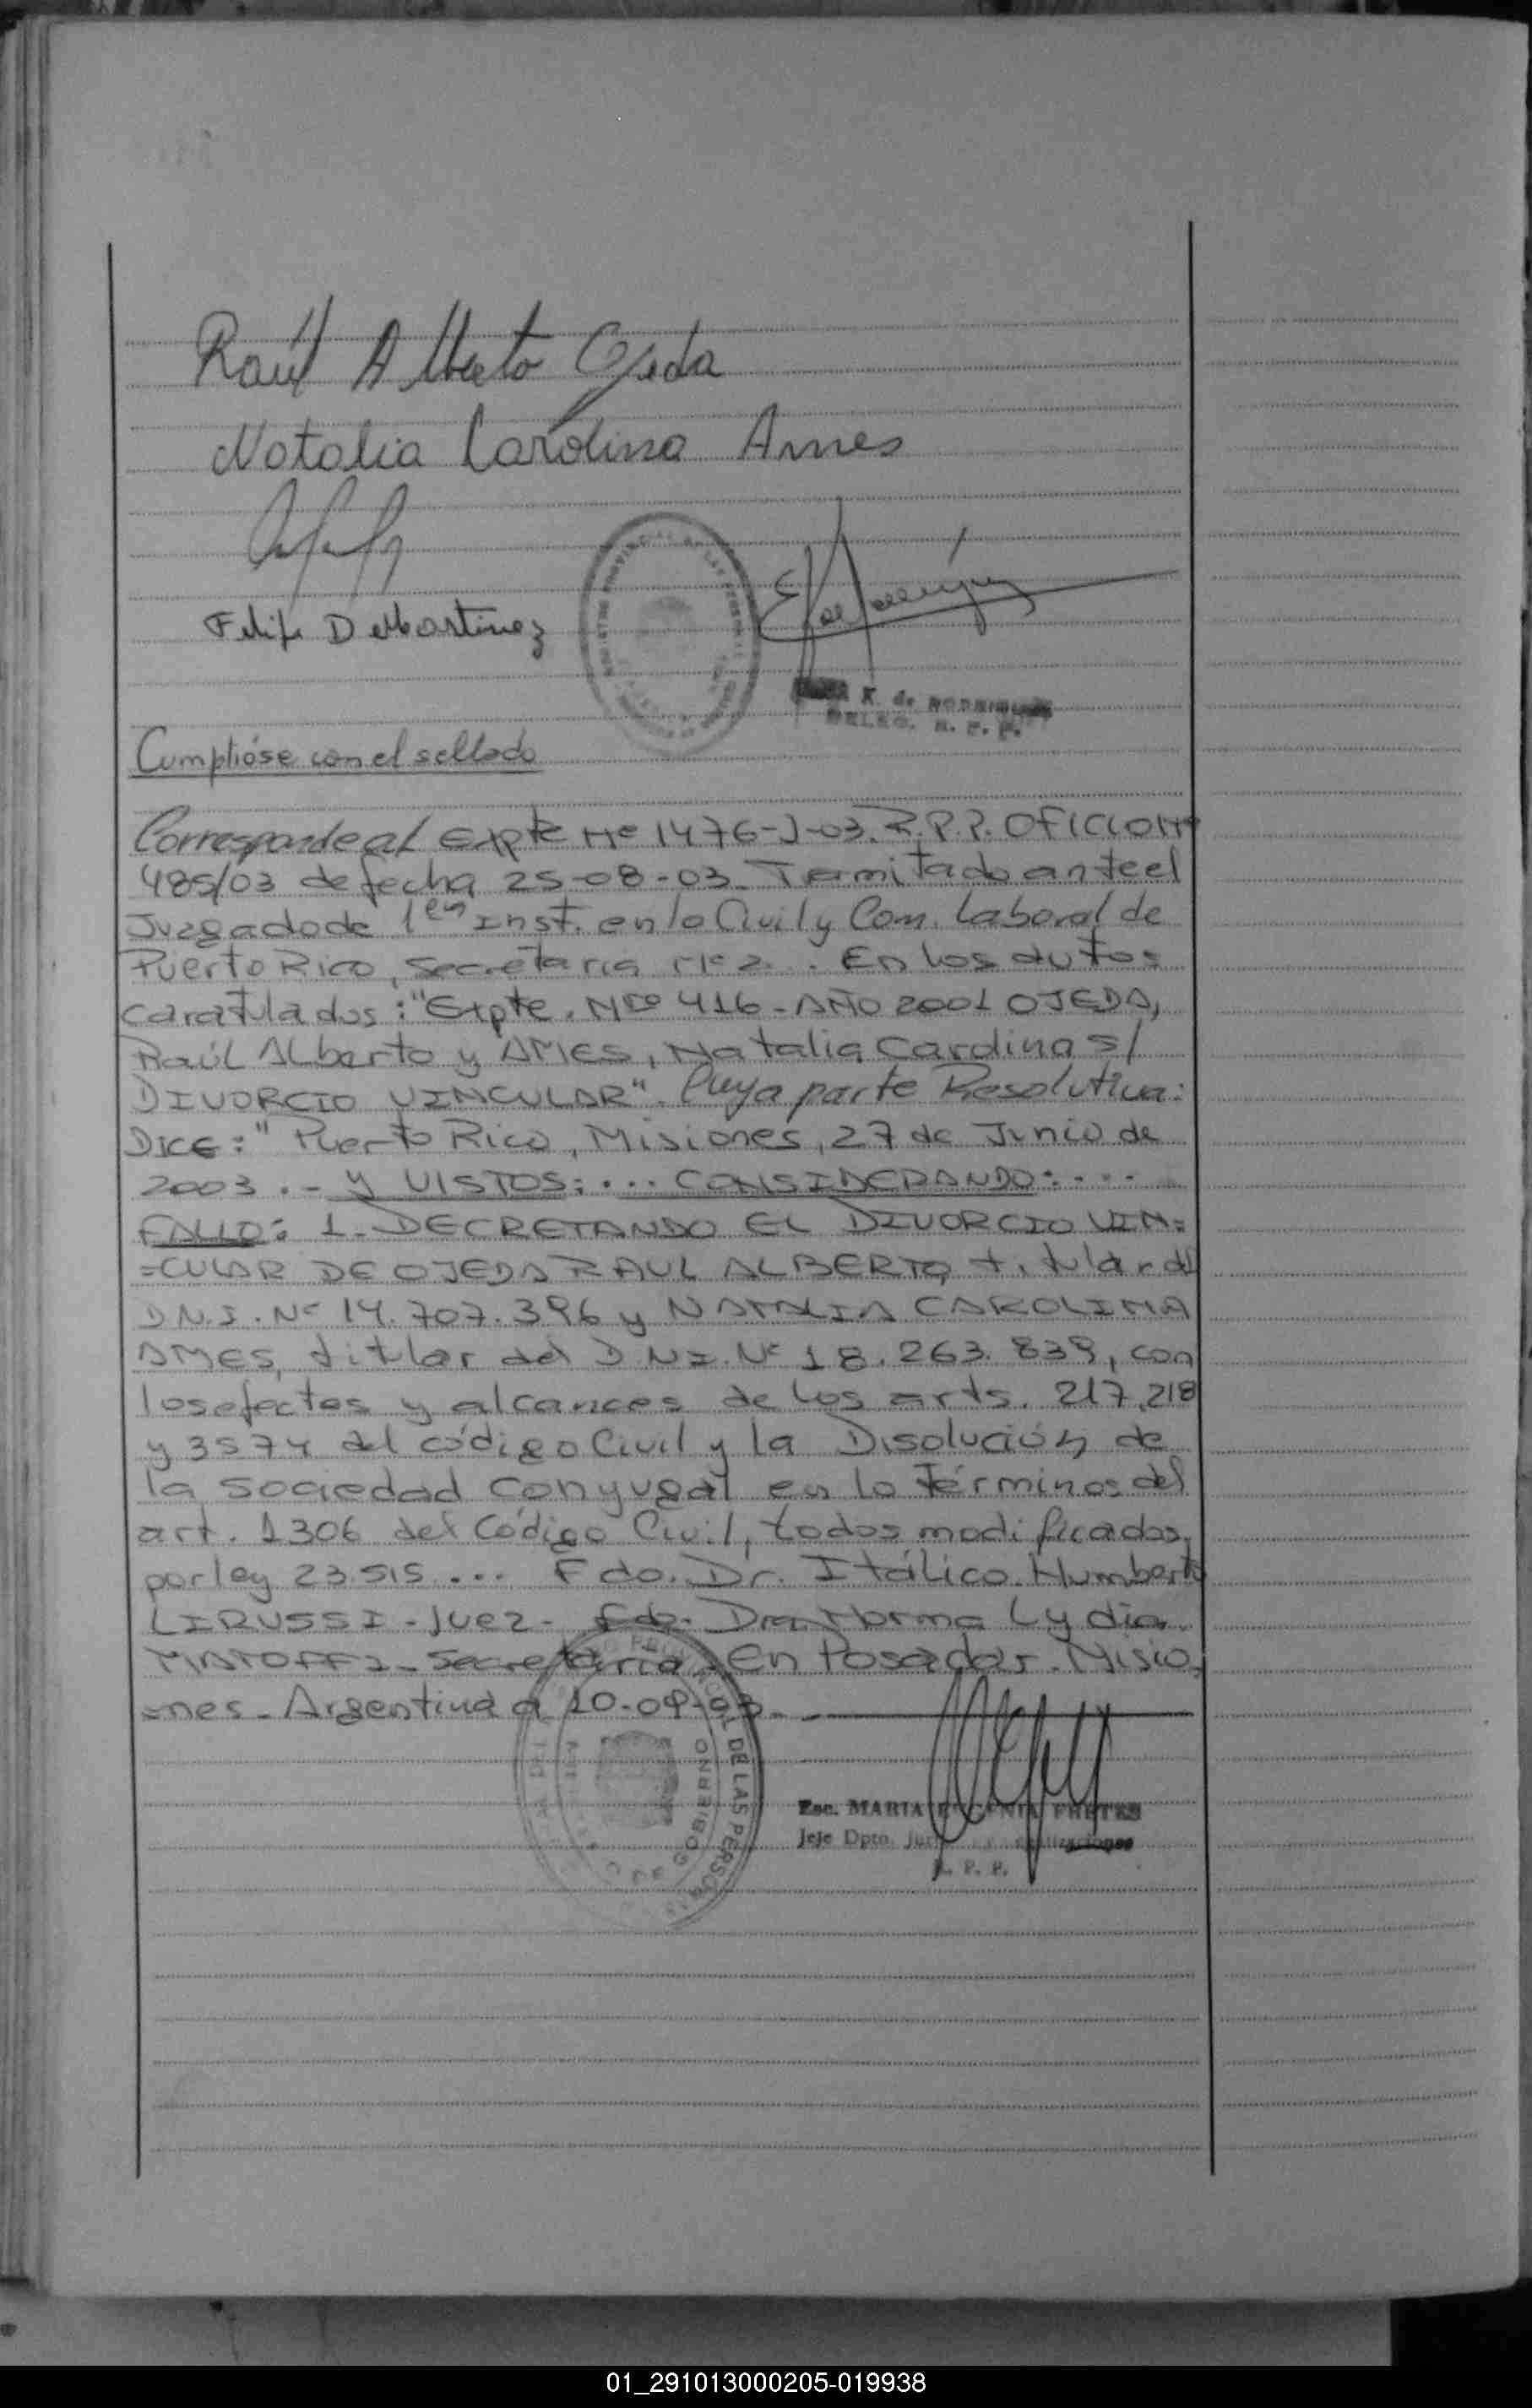 Raúl Alberto Ojeda
Natalia Carolina Ames
Felipe D Martinez
K. de RODRIGUEZ
DELEG. R. P. P.
Cumplióse con el sellado
Corresponde al Expte Nº 1476-J-03. R.P.P. OFICIO Nº
485/03 de fecha 25-08-03. Tramitado ante el
Juzgado de 1era Inst. en lo Civil y Com. Laboral de
Puerto Rico, Secretaria Nº 2. . En los autos
caratulados: "Expte. Nro 416 - AÑO 2001 OJEDA,
Raúl Alberto y AMES, Natalia Carolina s/
DIVORCIO VINCULAR". Cuya parte Resolutiva:
DICE: " Puerto Rico, Misiones, 27 de Junio de
2003 . - Y VISTOS: ... CONSIDERANDO: ...
FALLO: 1- DECRETANDO EL DIVORCIO VIN=
=CULAR DE OJEDA RAUL ALBERTO, titular del
D.N.I. Nº 14.707.396 y NATALIA CAROLINA
AMES, titular del D.N.I. Nº 18.263.839, con
los efectos y alcances de los arts. 217, 218
y 3574 del código Civil y la Disolución de
la sociedad conyugal en lo Términos del
art. 1306 del Código Civil, todos modificados,
por ley 23.515 ... Fdo. Dr. Itálico Humberto
LIRUSSI - Juez - Fdo. Dra. Norma Lydia
Secretaria. En Posadas. Misio,
=nes - Argentina a 10-09-03. -
DE LAS PERSONAS
GOBIERNO
Esc. MARIA EUGENIA FRETES
Jefe Dpto.
R. P. P.
01_291013000205-019938